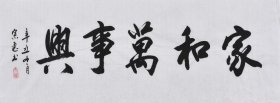 家和萬事興
辛丑年月